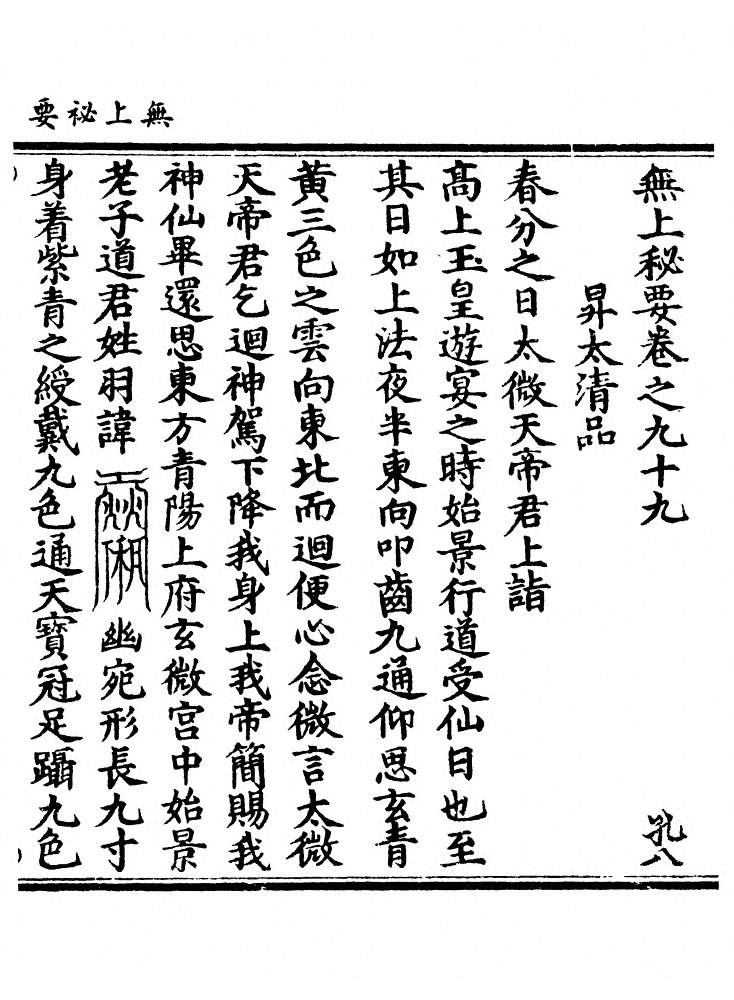 無上祕要
無上秘要卷之九十九
孔八
昇太清品
春分之日太微天帝君上詣
髙上玉皇遊宴之時始景行道受仙日也至
其日如上法夜半東向叩齒九通仰思玄青
黃三色之雲向東北而迴便心念微言太微
天帝君乞迴神駕下降我身上我帝簡賜我
神仙畢還思東方青陽上府玄微宮中始景
老子道君姓羽諱
幽宛形長九寸
身着紫青之綬戴九色通天寶冠足躡九色